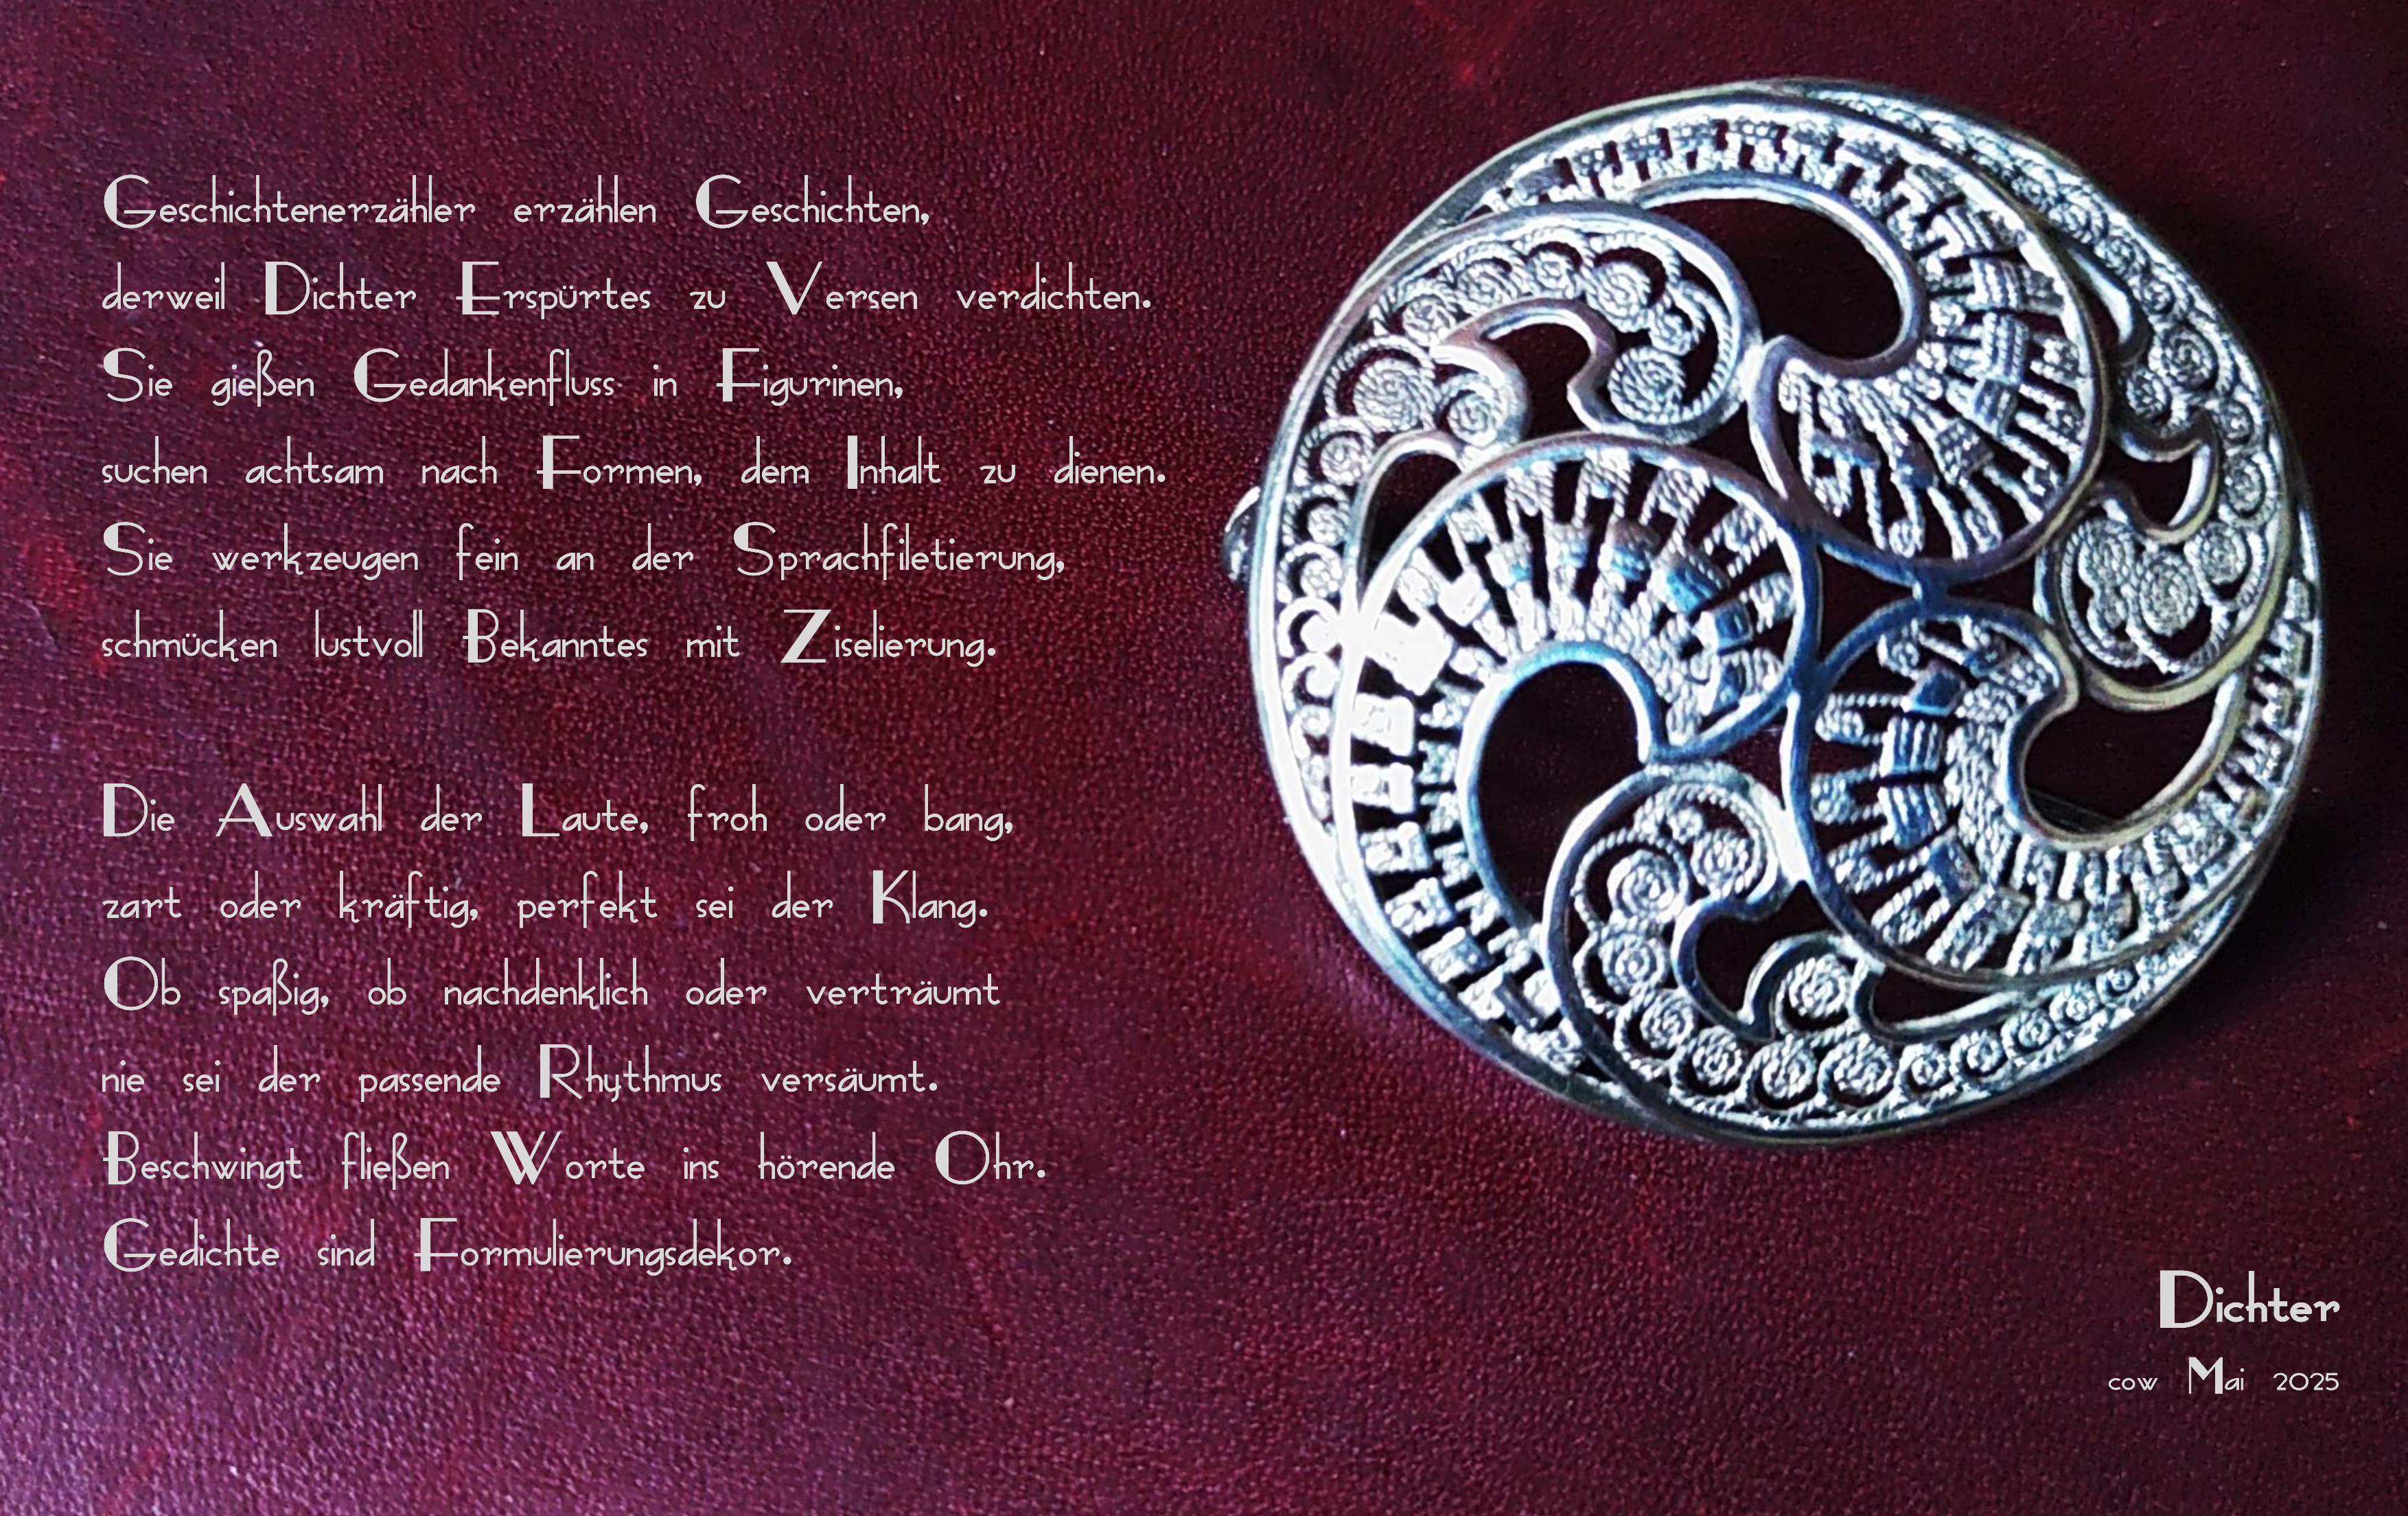 Geschichtenerzähler erzählen Geschichten,
derweil Dichter Erspürtes zu Versen verdichten.
Sie gießen Gedankenfluss in Figurinen,
suchen achtsam nach Formen, dem Inhalt zu dienen.
Sie werkzeugen fein an der Sprachfiletierung,
schmücken lustvoll Bekanntes mit Ziselierung.
Die Auswahl der Laute, froh oder bang,
zart oder kräftig, perfekt sei der Klang.
Ob spaßig, ob nachdenklich oder verträumt
nie sei der passende Rhythmus versäumt.
Beschwingt fließen Worte ins hörende Ohr.
Gedichte sind Formulierungsdekor.
Dichter
cow Mai 2025